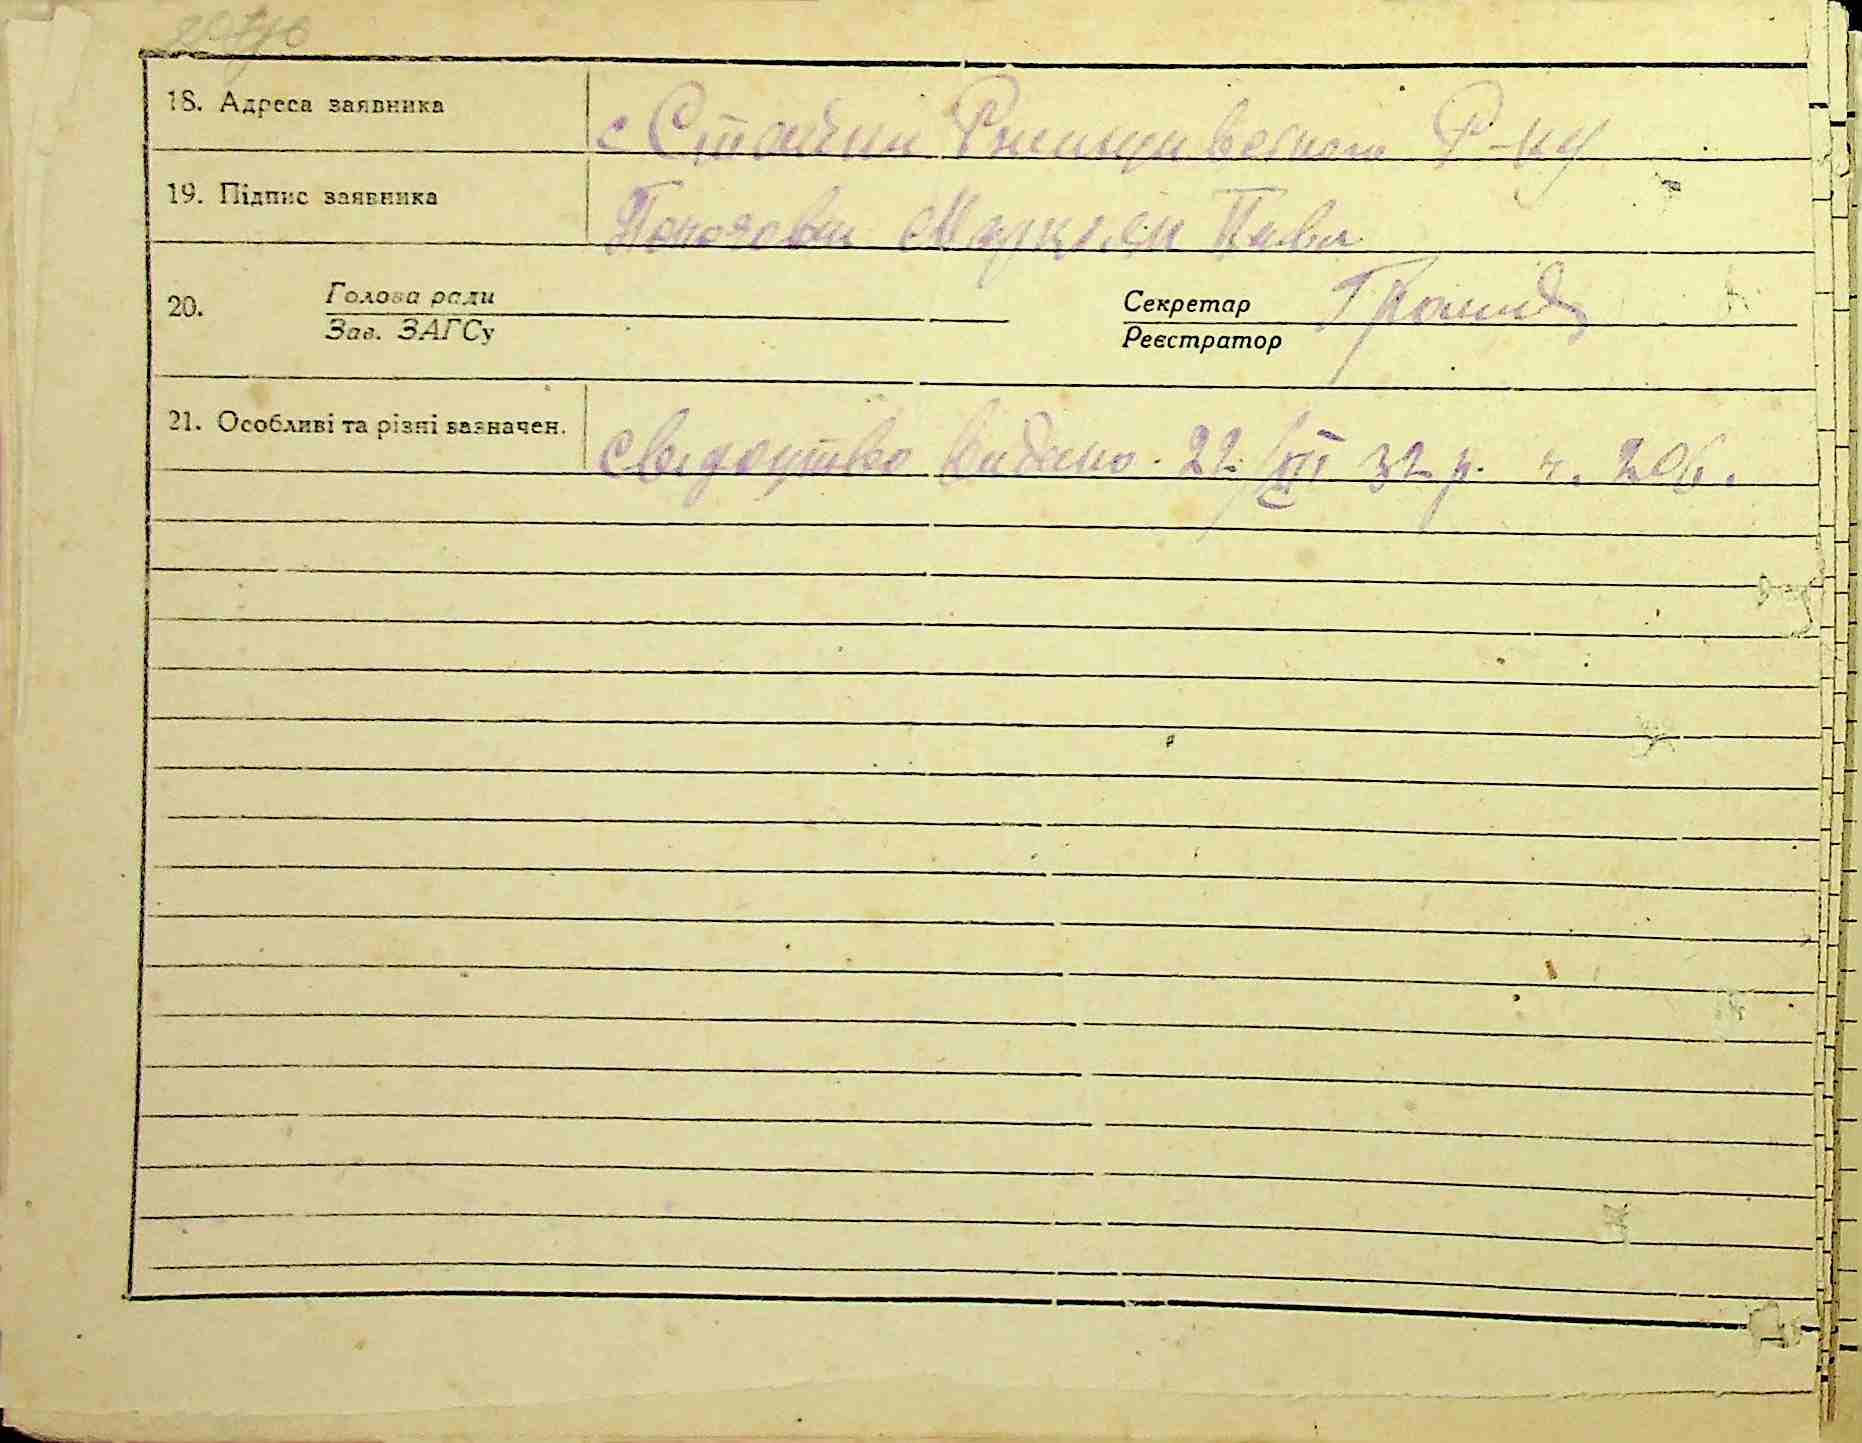 18. Адреса заявника
с Стайки Ржищивського Р-ну
19. Підпис заявника
Маркіян Павл
20. Голова ради
Зав. ЗАГСу
Секретар
Реєстратор
21. Особливі та різні зазначен.
свідоцтво видано. 22/III 32 р. ч. 206.